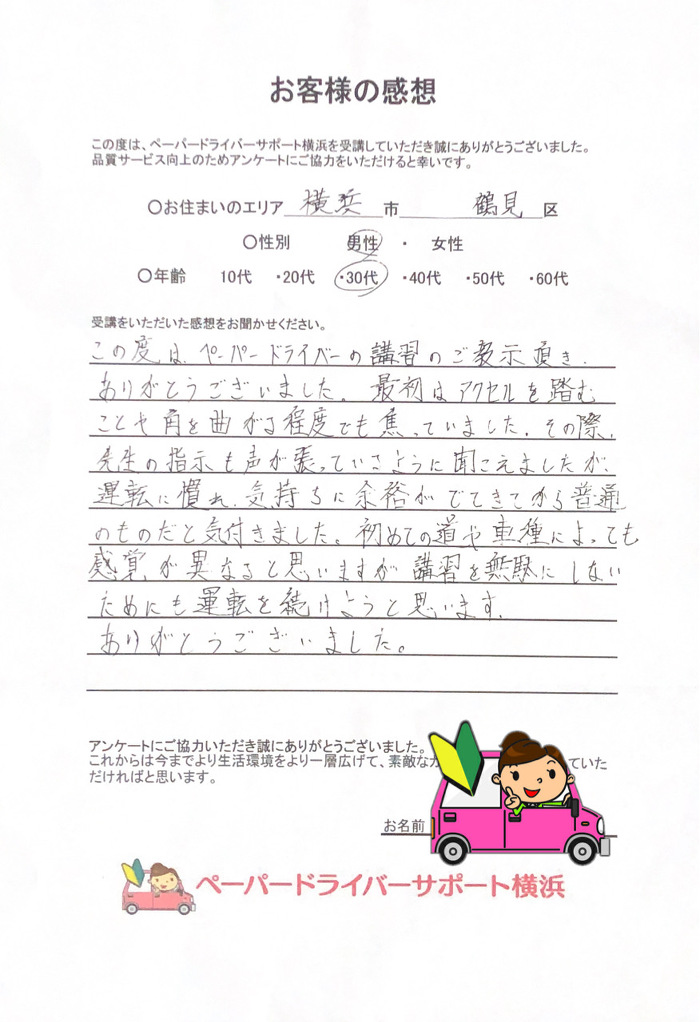 お客様の感想
この度は、ペーパードライバーサポート横浜を受講していただき誠にありがとうございました。
品質サービス向上のためアンケートにご協力をいただけると幸いです。
〇お住まいのエリア 横浜 市 鶴見 区
〇性別 男性 ・ 女性
〇年齢 10代 ・20代 ・30代 ・40代 ・50代 ・60代
受講をいただいた感想をお聞かせください。
この度は、ペーパードライバーの講習のご教示頂き、
ありがとうございました。最初はアクセルを踏む
ことや角を曲がる程度でも焦っていました。その際、
先生の指示も声が張っているように聞こえましたが、
運転に慣れ、気持ちに余裕がでてきてから普通
のものだと気付きました。初めての道や車種によっても
感覚が異なると思いますが講習を無駄にしない
ためにも運転を続けようと思います。
ありがとうございました。
アンケートにご協力いただき誠にありがとうございました。
これからは今までより生活環境をより一層広げて、素敵な ていた
だければと思います。
お名前
ペーパードライバーサポート横浜